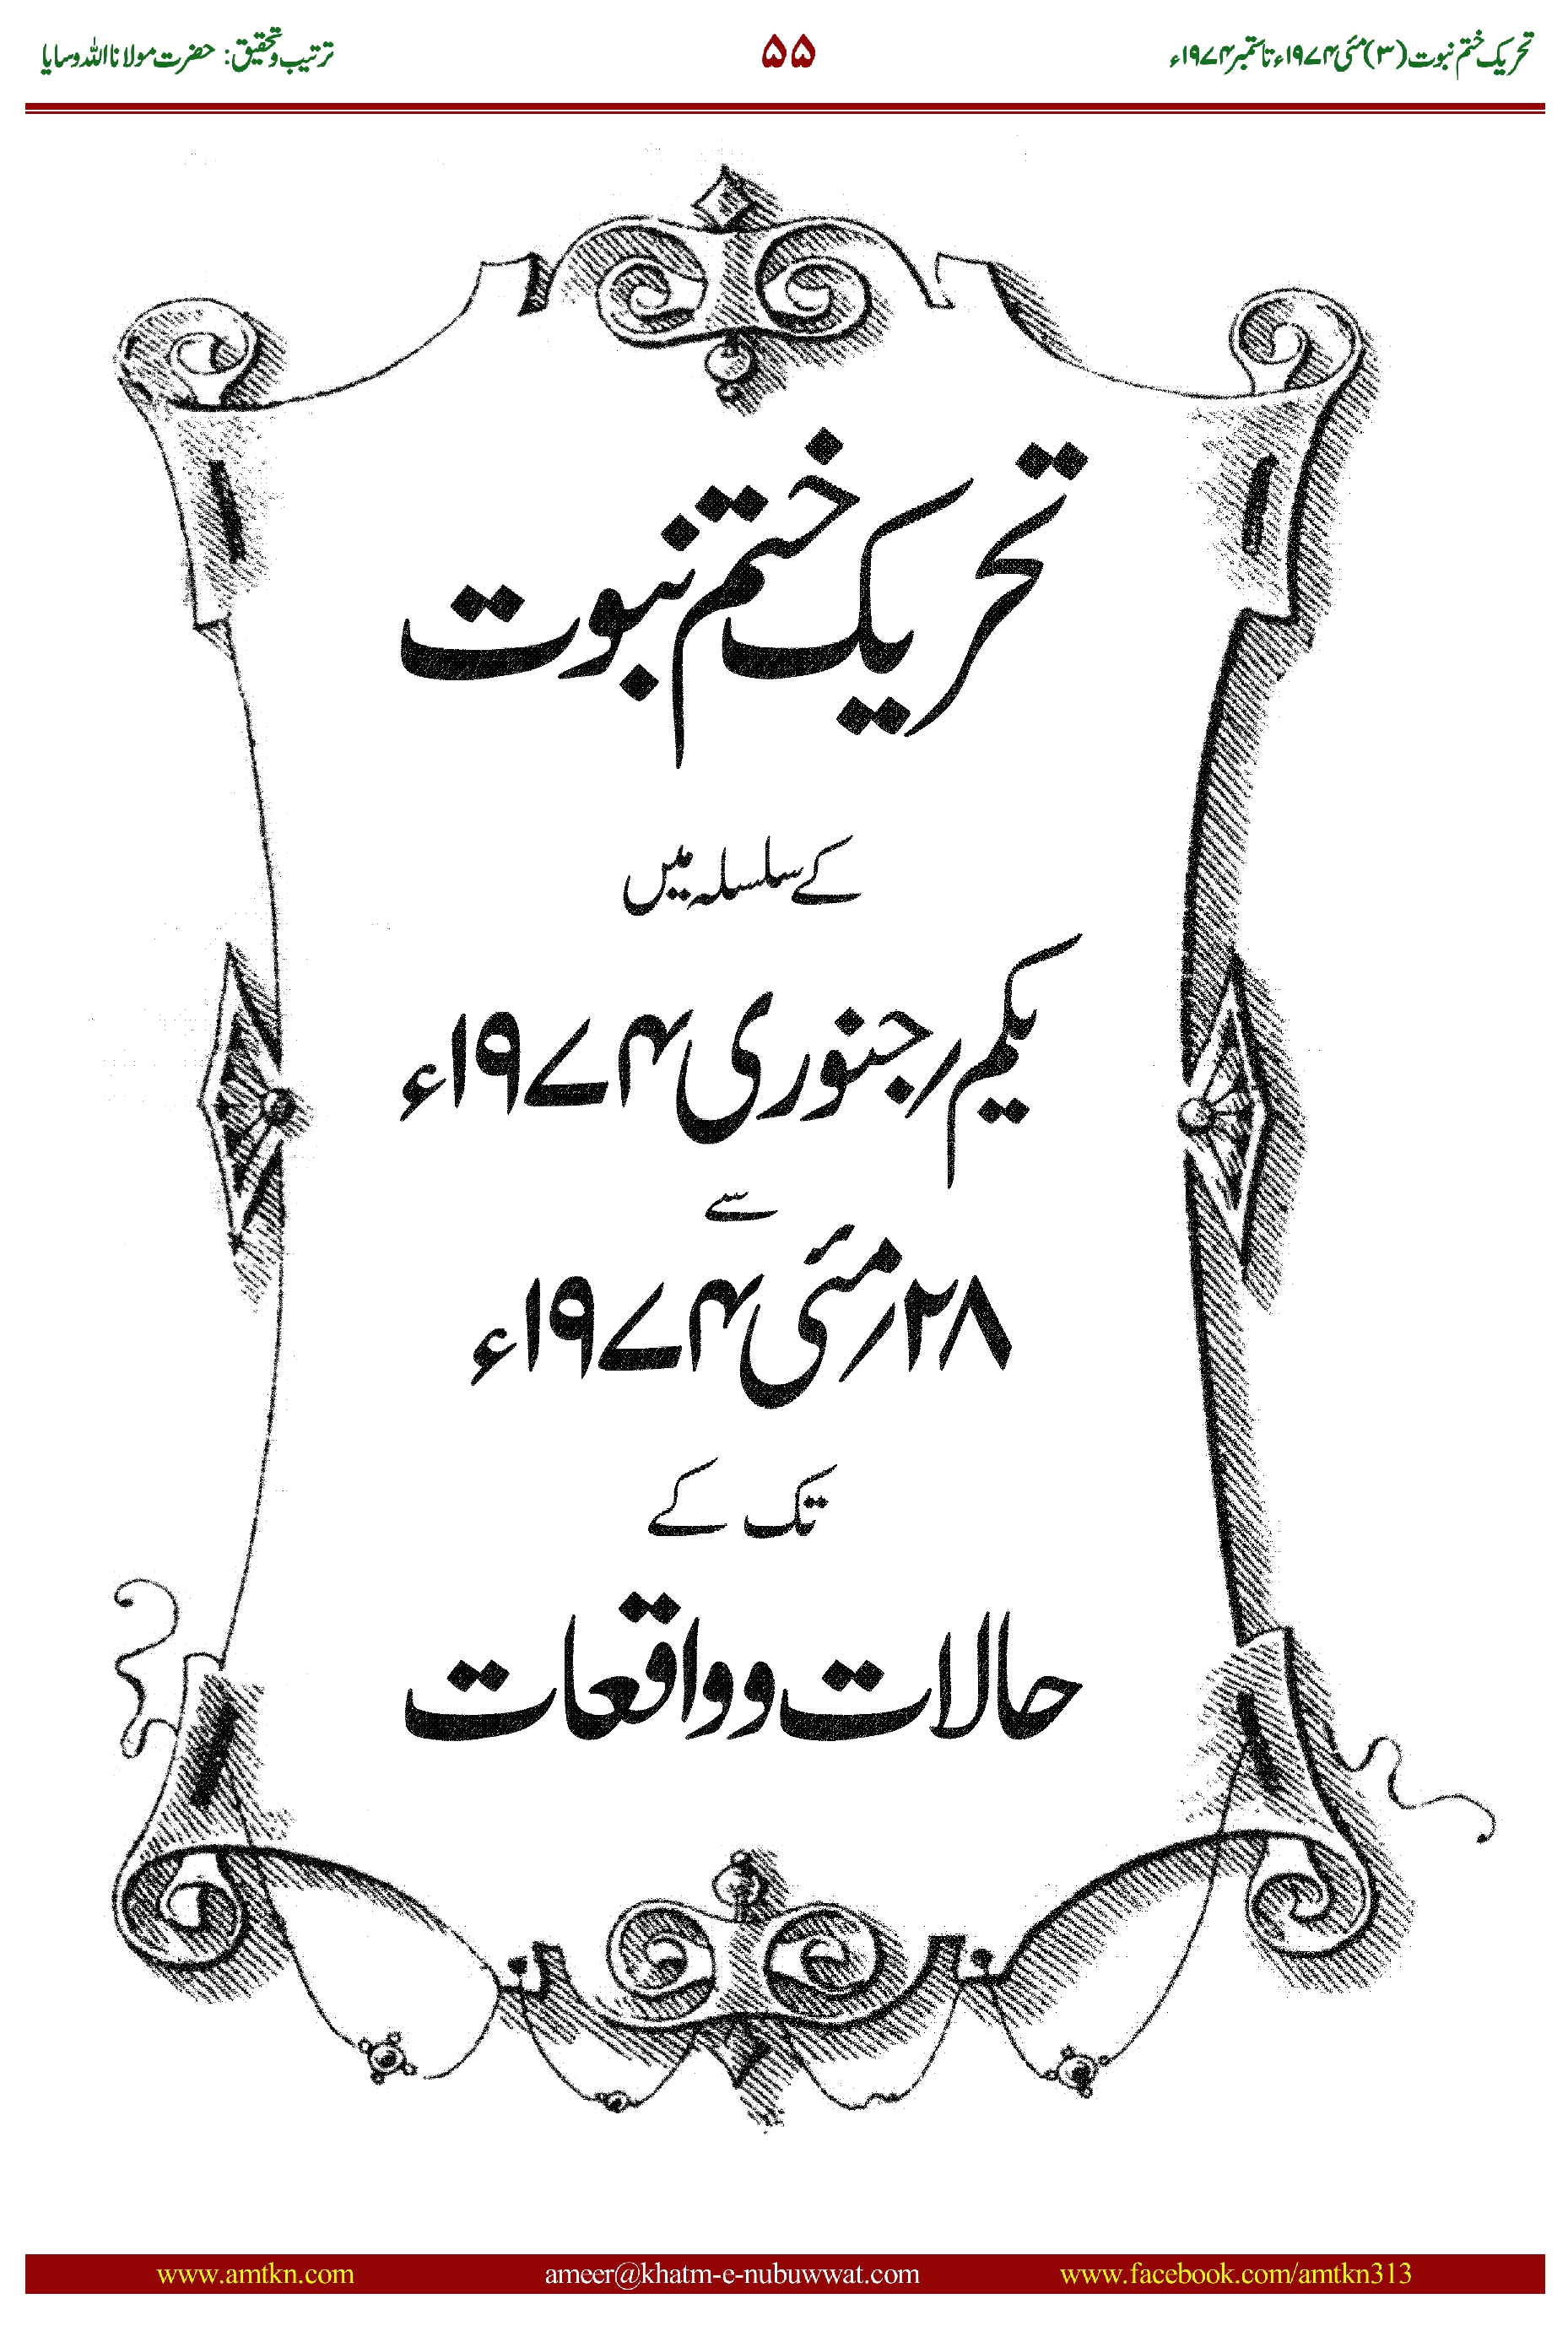 تحریک ختم نبوت (۳) مئی ۱۹۷۴ء تا ستمبر ۱۹۷۴ء
۵۵
ترتیب و تحقیق: حضرت مولانا اللہ وسایا
تحریک ختم نبوت
کے سلسلہ میں
یکم؍ جنوری ۱۹۷۴ء
سے
۲۸؍ مئی ۱۹۷۴ء
تک کے
حالات و واقعات
www.amtkn.com ameer@khatm-e-nubuwwat.com www.facebook.com/amtkn313